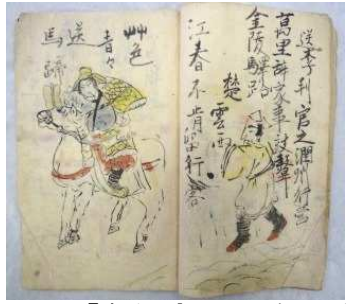 送李判官之潤州行営
萬里辞家事鼓鼙
金陵驛路
楚
雲西
江春不肯留行客
艸色
青々
送
馬蹄